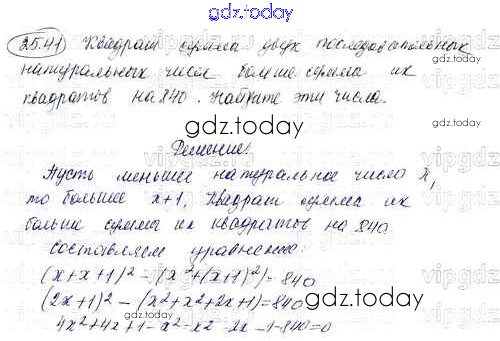 gdz.today
25.41 Квадрат суммы двух последовательных
натуральных чисел больше суммы их
gdz.today
квадратов на 840. Найдите эти числа.
gdz.today
Решение
Пусть меньшее натуральное число x,
то большее x+1. Квадрат суммы их
больше суммы их квадратов на 840.
gdz.today
Составляем уравнение:
(x+x+1)² - (x²+(x+1)²)=840
(2x+1)² - (x²+x²+2x+1)=840
gdz.today
4x²+4x+1-x²-x²-2x-1-840=0